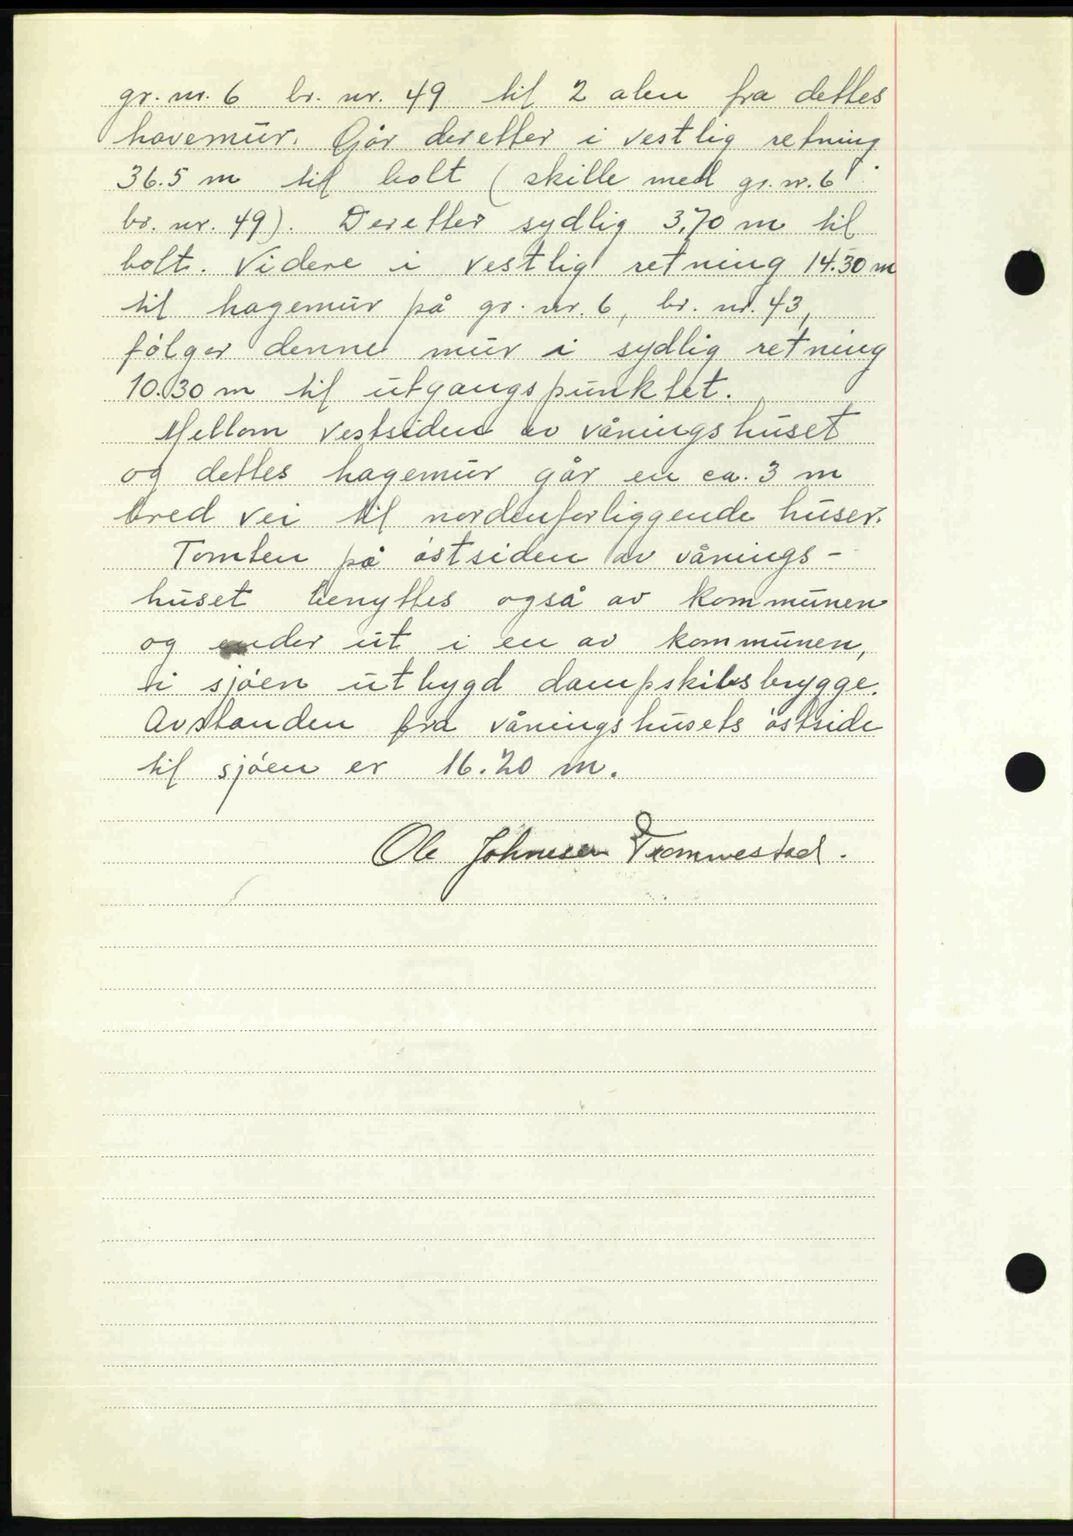 gr. nr. 6 br. nr. 49 til 2 alen fra dettes
havemur. Går deretter i vestlig retning
36.5 m til bolt (skille med gr. nr. 6
br. nr. 49). Deretter sydlig 3.70 m til
bolt. Videre i vestlig retning 14.30 m
til hagemur på gr. nr. 6, br. nr. 43,
følger denne mur i sydlig retning
10.30 m til utgangspunktet.
Mellom vestsiden av våningshuset
og dettes hagemur går en ca. 3 m
bred vei til nordenforliggende huser.
Tomten på østsiden av vånings-
huset benyttes også av kommunen
og ender ut i en av kommunen,
i sjøen utbygd dampskibsbrygge.
Avstanden fra våningshusets østside
til sjøen er 16.20 m.
Ole Johnsen Tromnestad.